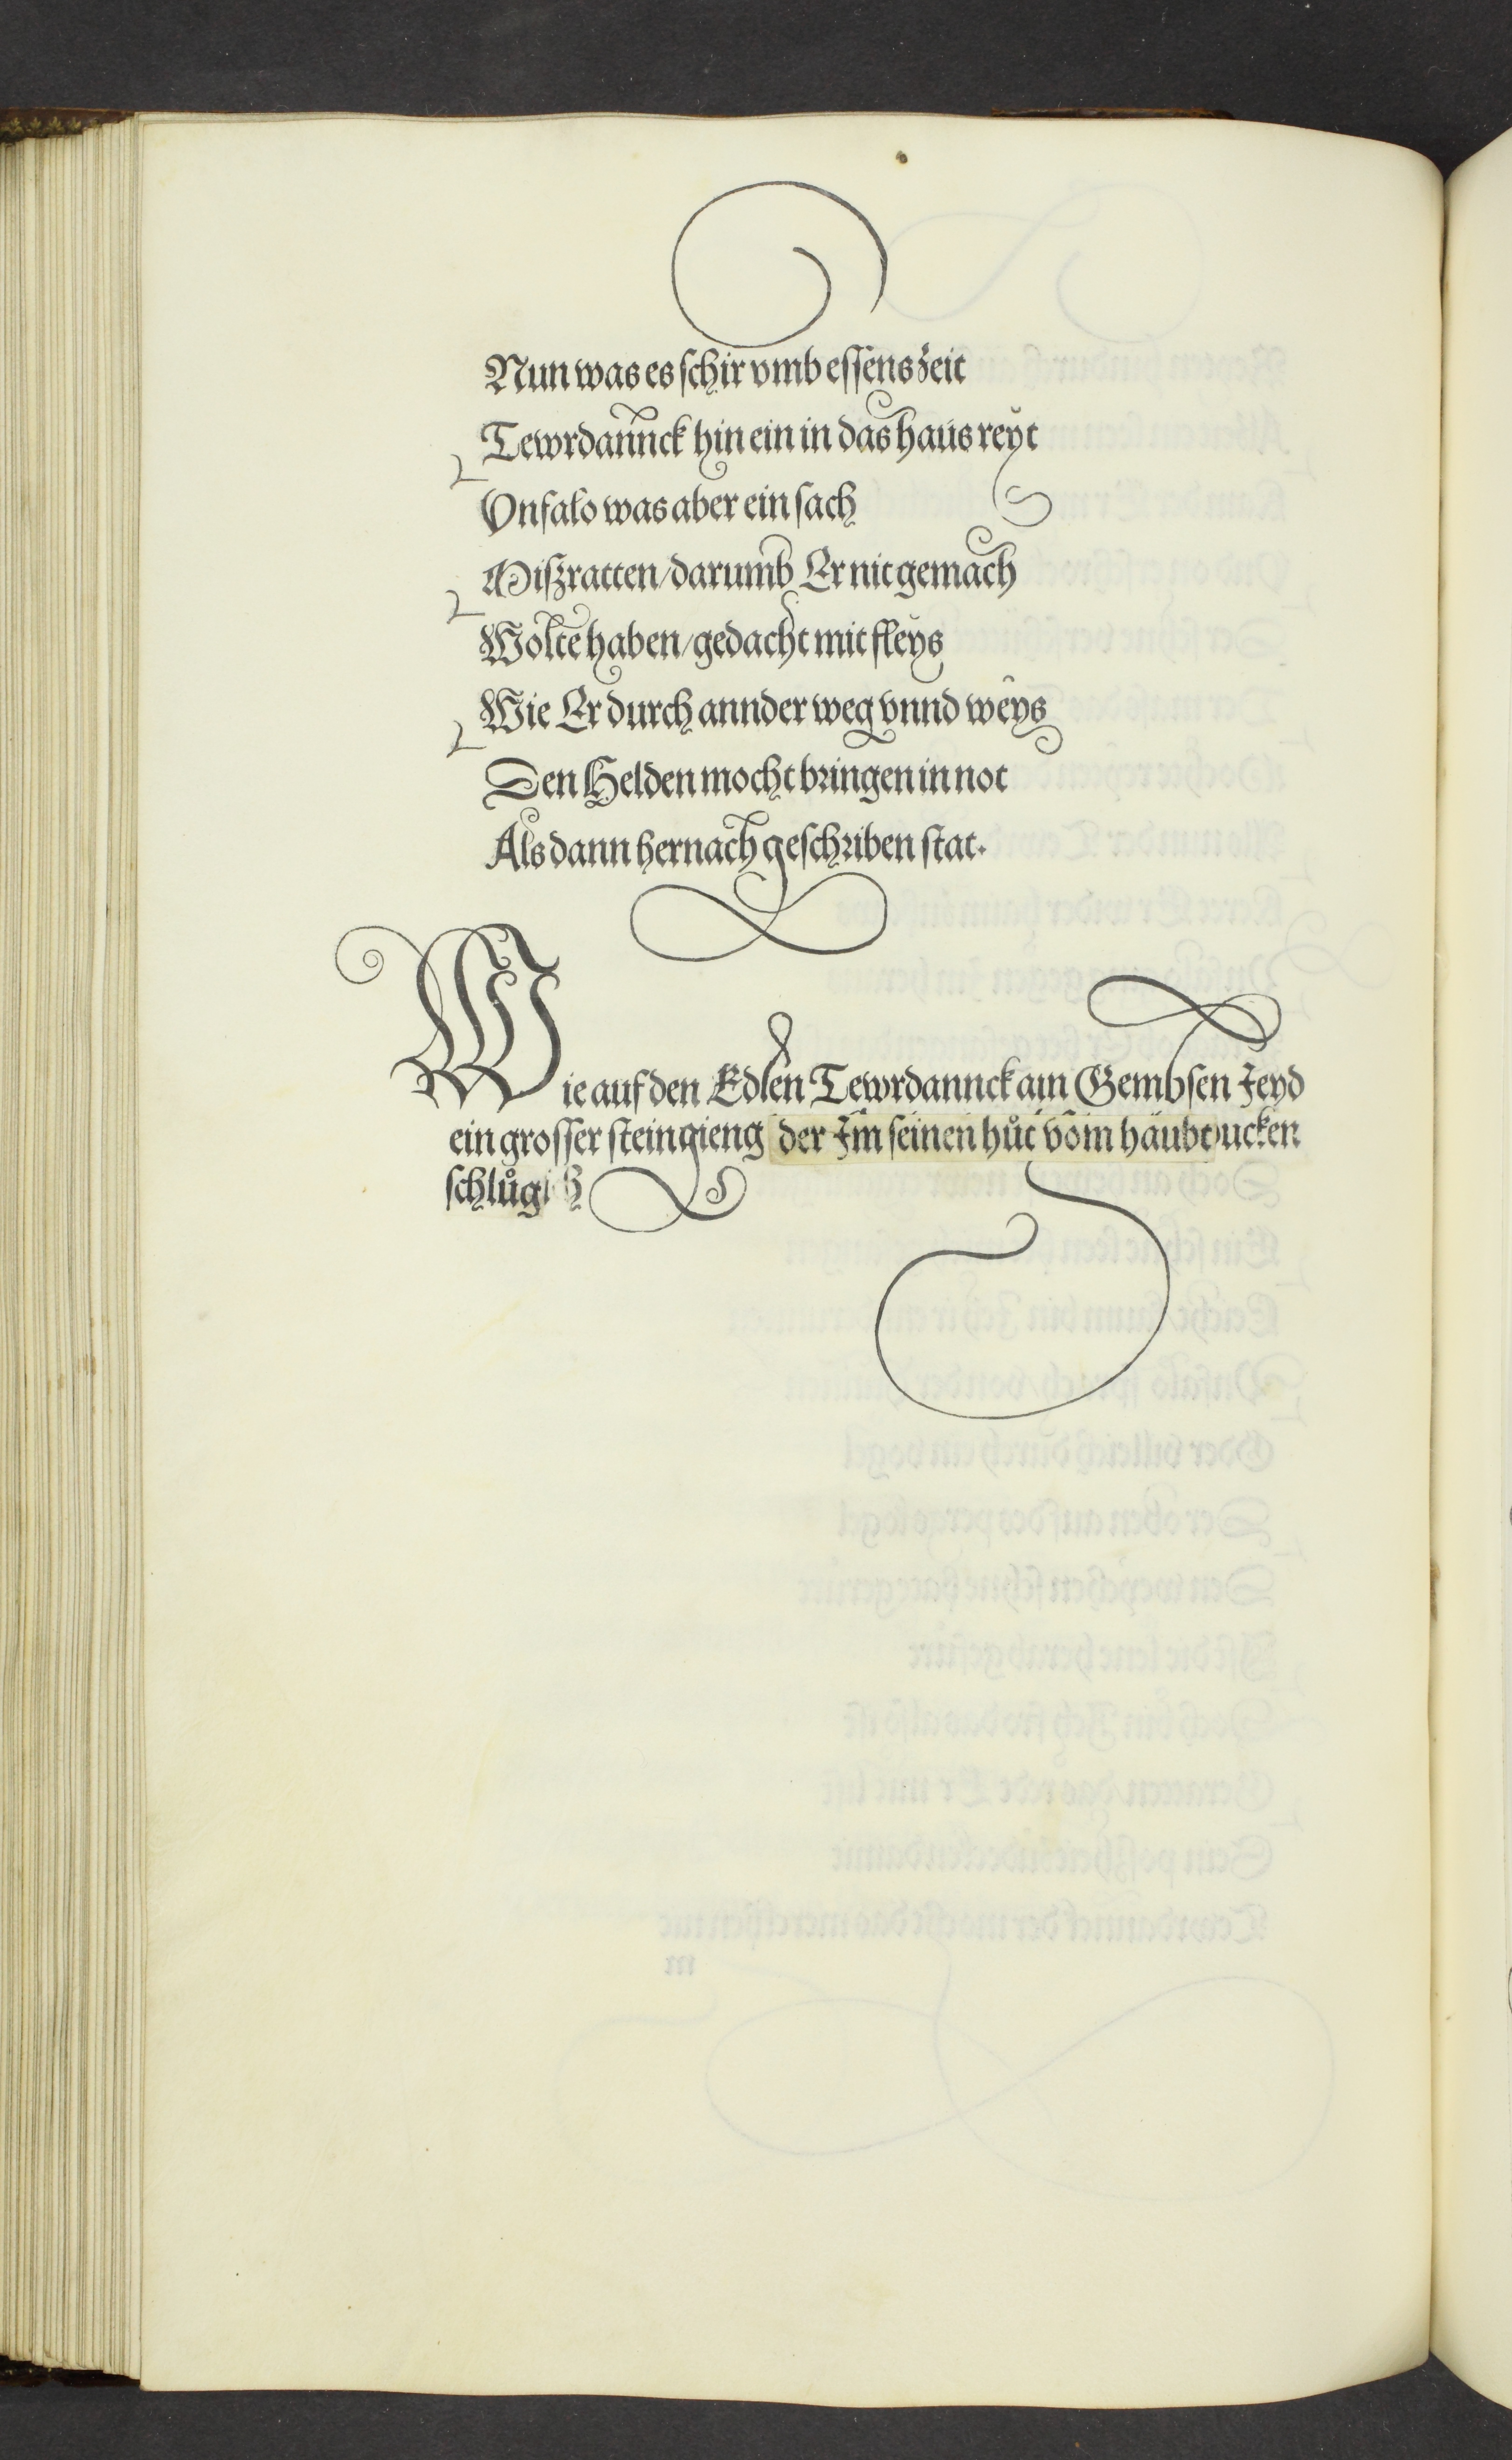 Nun was es schir vmb essens zeit
Tewrdannck hin ein in das haus reyt
Vnfalo was aber ein sach
Miszratten/darumb Er nit gemach
Wolte haben/gedacht mit fleys
Wie Er durch annder weg vnnd weys
Den Helden mocht bringen in not
Als dann hernach geschriben stat.
Wie auf den Edlen Tewrdannck am Gembsen Jeyd
ein grosser stein gieng der Im seinen hůt vom haubt
schlůg